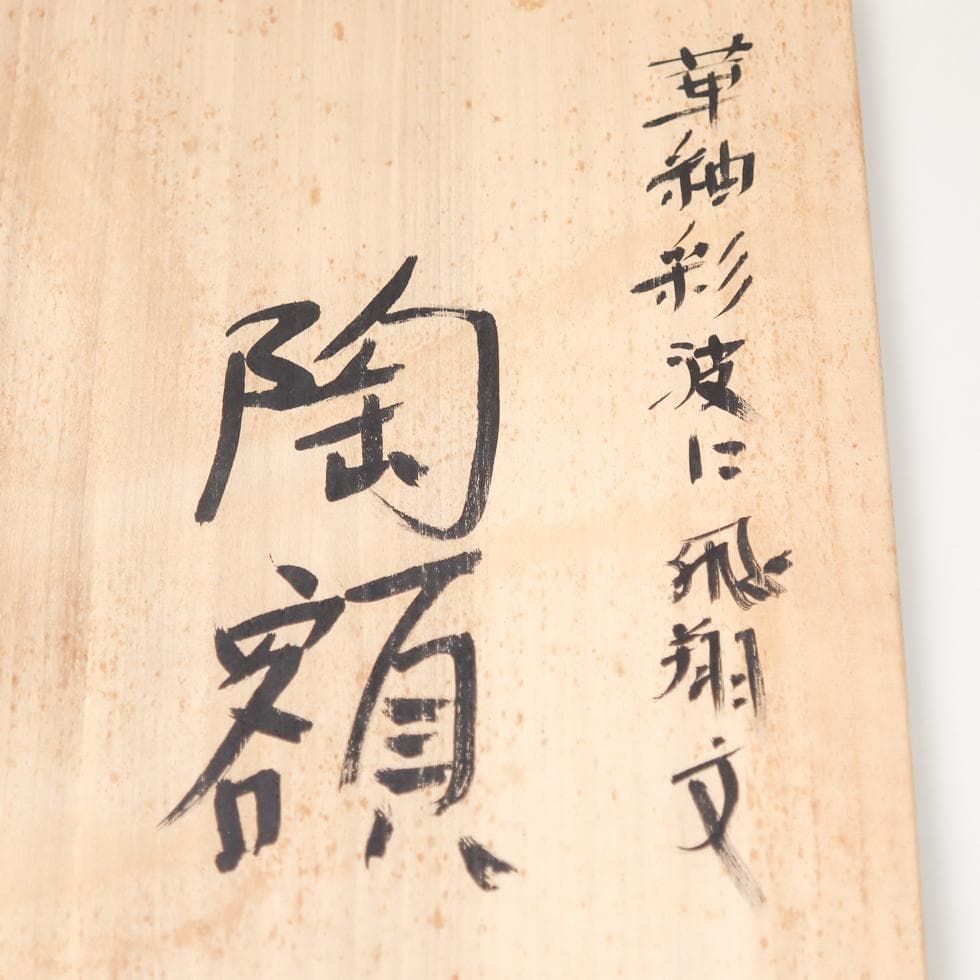 華釉彩波に飛翔文
陶額